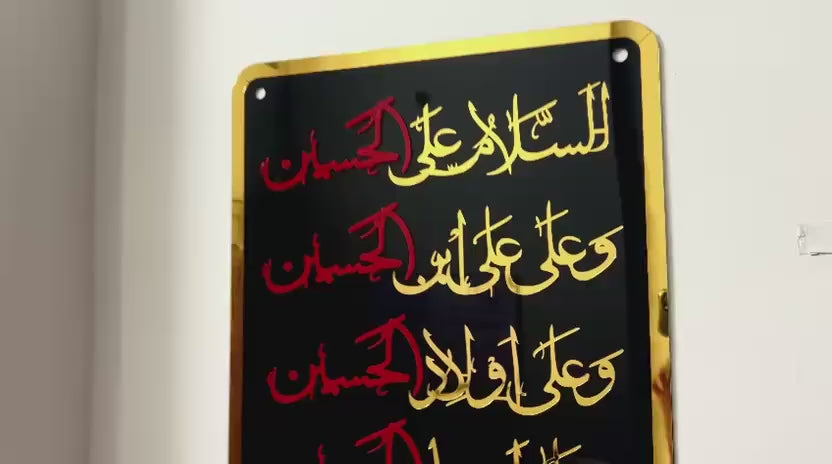 السَّلامُ عَلَى الحسين
وَعَلى عَلى ابن الحسين
وَعَلى اَولاد الحسين
الحسين